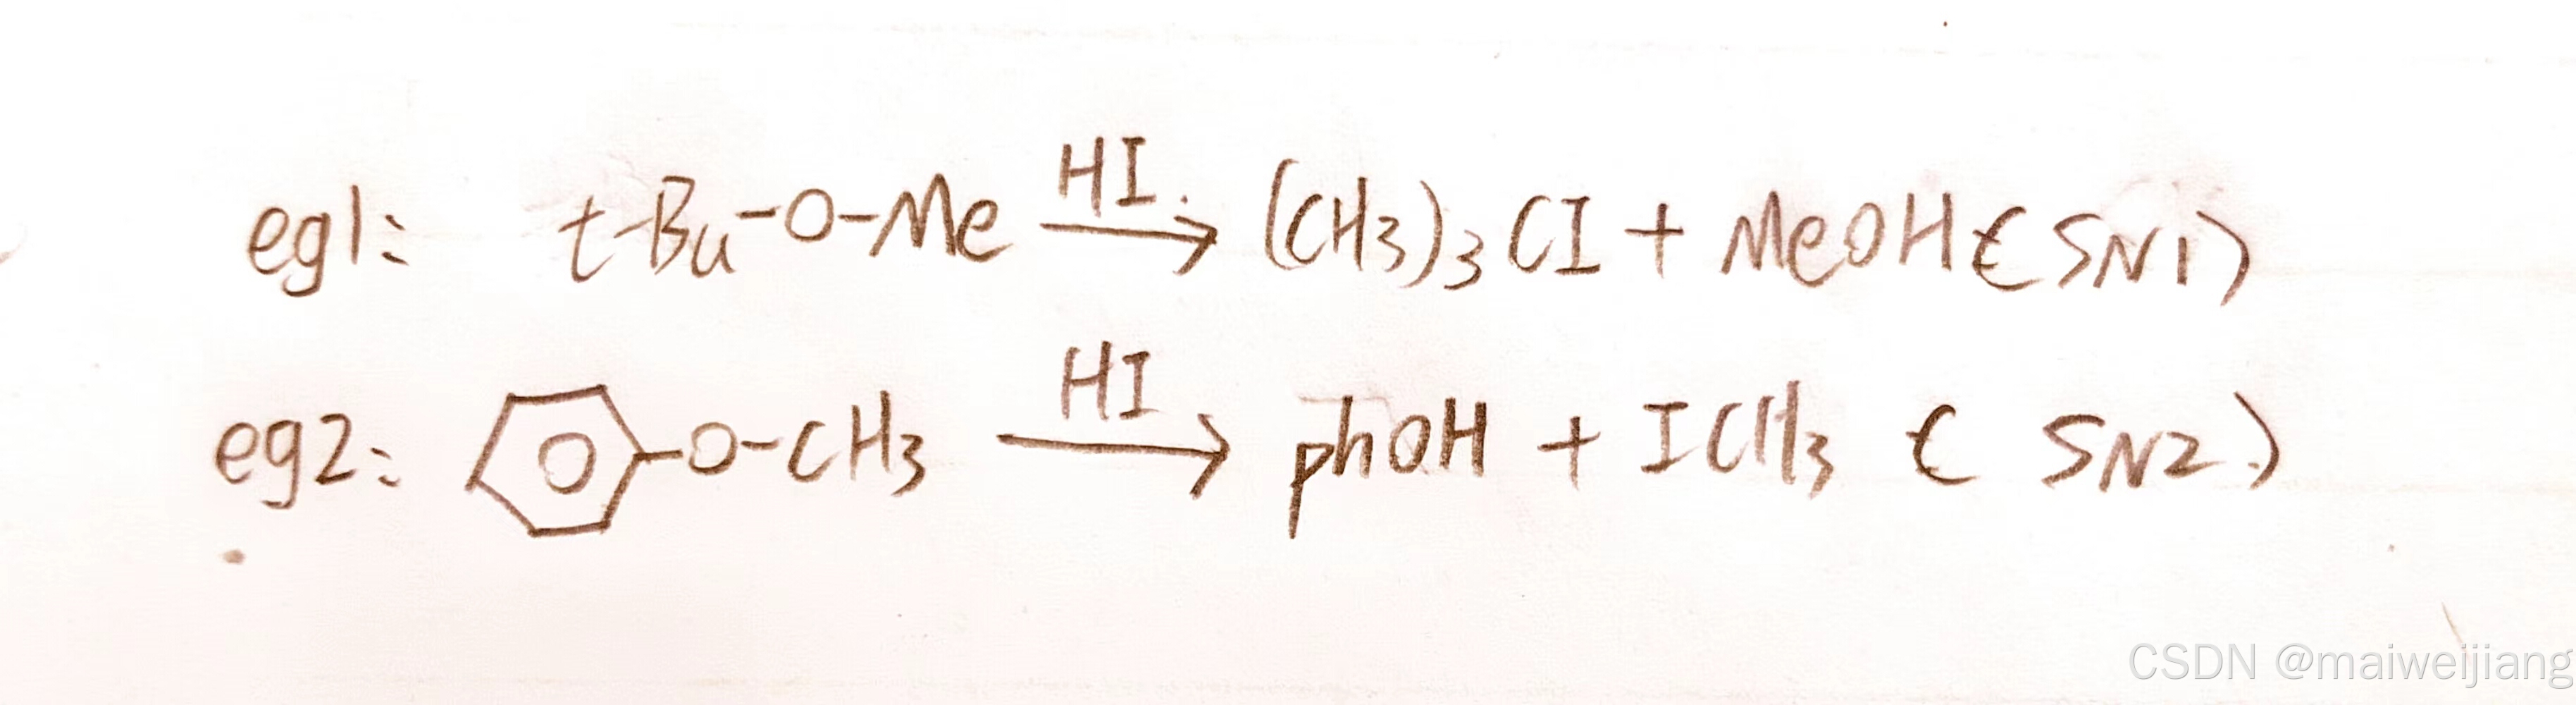 HI
eg1: t-Bu-O-Me → (CH3)3CI + MeOH (SN1)
HI
eg2: -O-CH3 → phOH + ICH3 (SN2)
CSDN @maiweijiang